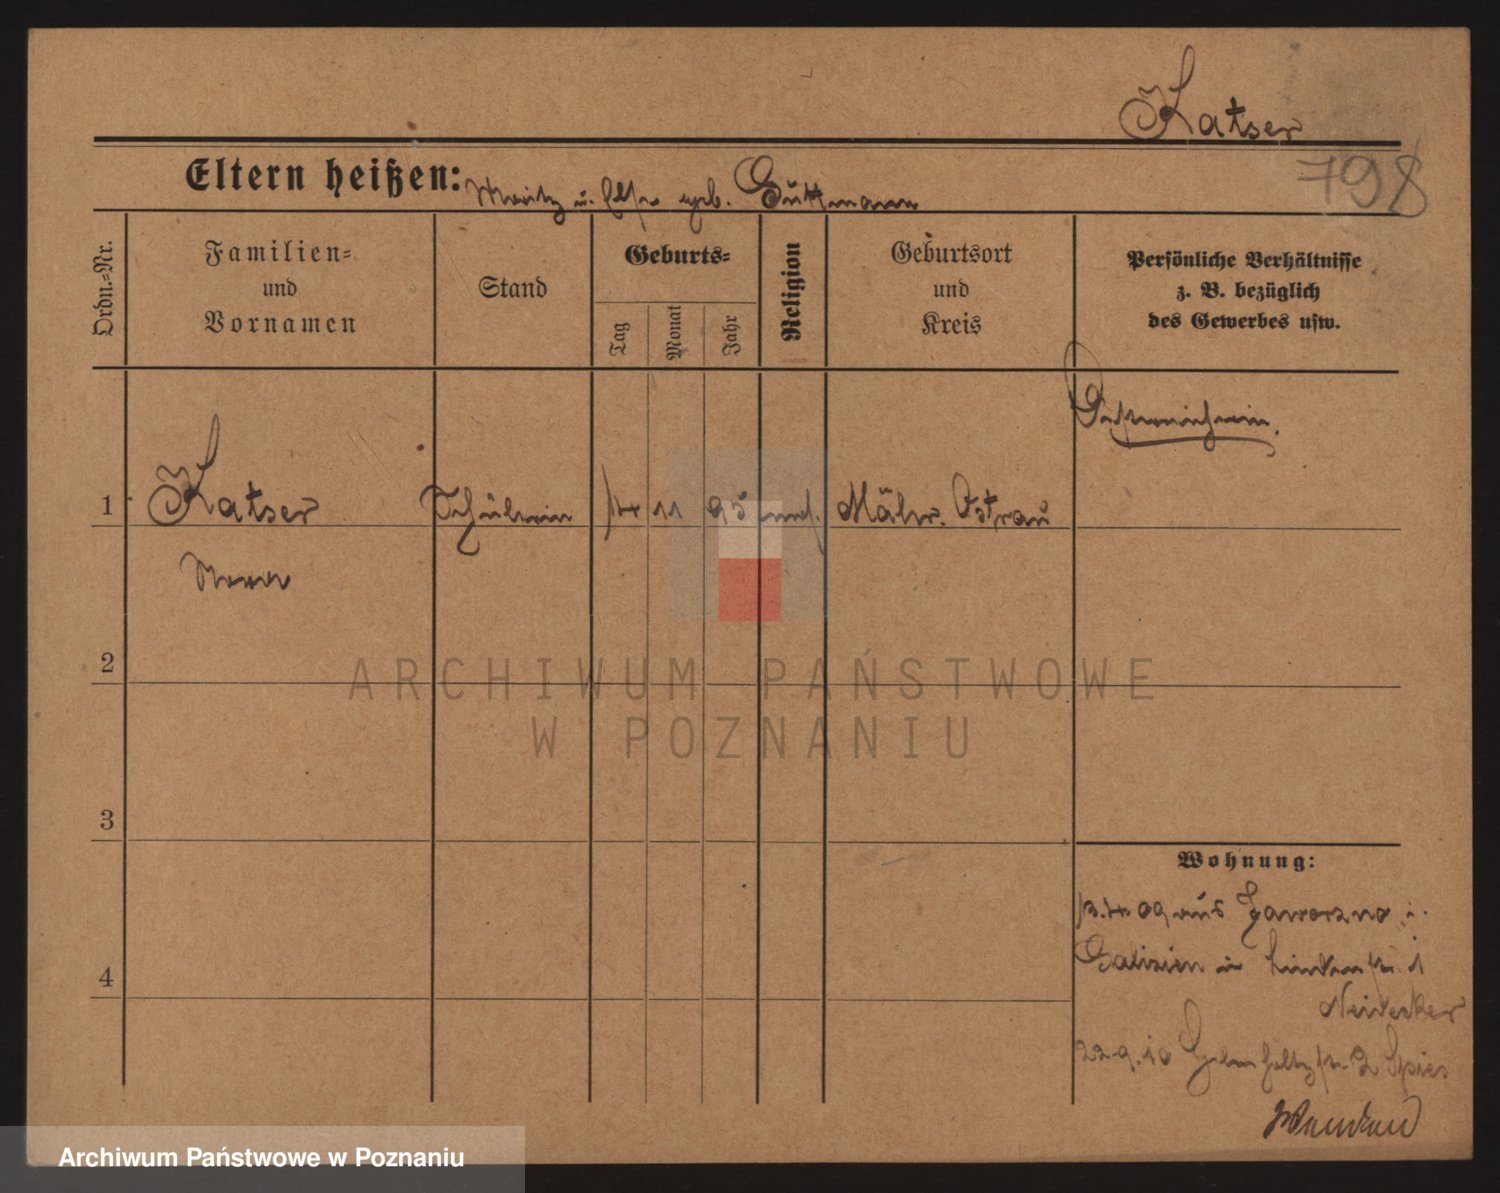 Katser
798
Eltern heißen: Moritz u. Else geb. Guttmann
Ordn.-Nr.
Familien-
und
Vornamen
Stand
Geburts-
Tag
Monat
Jahr
Religion
Geburtsort
und
Kreis
Persönliche Verhältnisse
z. B. bezüglich
des Gewerbes usw.
Oesterreicherin.
1 Katser Schülerin 14 11 95 mos. Mähr. Ostrau
2
3
4
Wohnung:
09 aus Jaworzno i.
Galizien in Lindenstr. 1
Neidecker
22 9. 10 Helmholtzstr. 2 Spies
ARCHIWUM PAŃSTWOWE
W POZNANIU
Archiwum Państwowe w Poznaniu